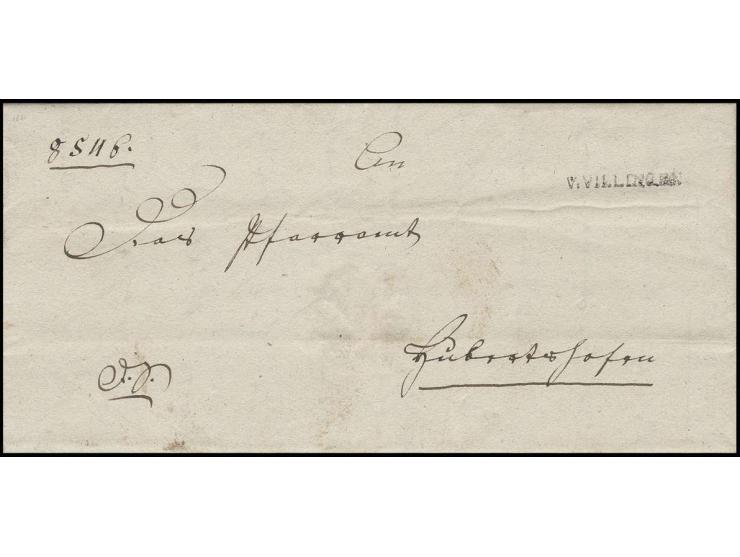 8546.
An
V. VILLINGEN
Das Pfarramt
Hubertshofen
D. S.